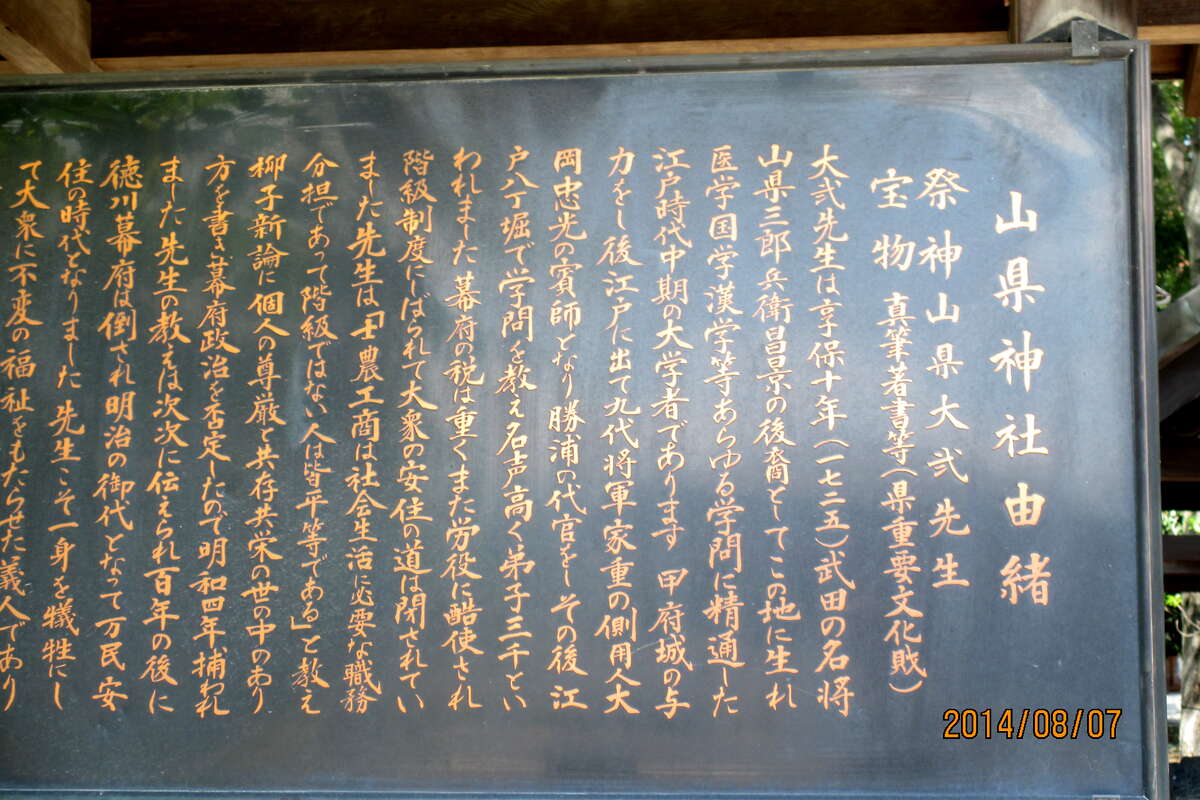 山県神社由緒
祭神山県大弐先生
宝物 真筆著書等(県重要文化財)
大弐先生は享保十年(一七二五)武田の名将
山県三郎兵衛昌景の後裔としてこの地に生れ
医学国学漢学等あらゆる学問に精通した
江戸時代中期の大学者であります 甲府城の与
力をし後江戸に出て九代将軍家重の側用人大
岡忠光の賓師となり勝浦の代官をしその後江
戸八丁堀で学問を教え名声高く弟子三千とい
われました 幕府の税は重くまた労役に酷使され
階級制度にしばられて大衆の安住の道は閉されてい
ました 先生は「士農工商は社会生活に必要な職務
分担であって階級ではない人は皆平等である」と教え
柳子新論に個人の尊厳と共存共栄の世の中のあり
方を書き幕府政治を否定したので明和四年捕われ
ました 先生の教えは次次に伝えられ百年の後に
徳川幕府は倒され明治の御代となって万民安
住の時代となりました 先生こそ一身を犠牲にし
て大衆に不変の福祉をもたらせた義人であり
2014/08/07